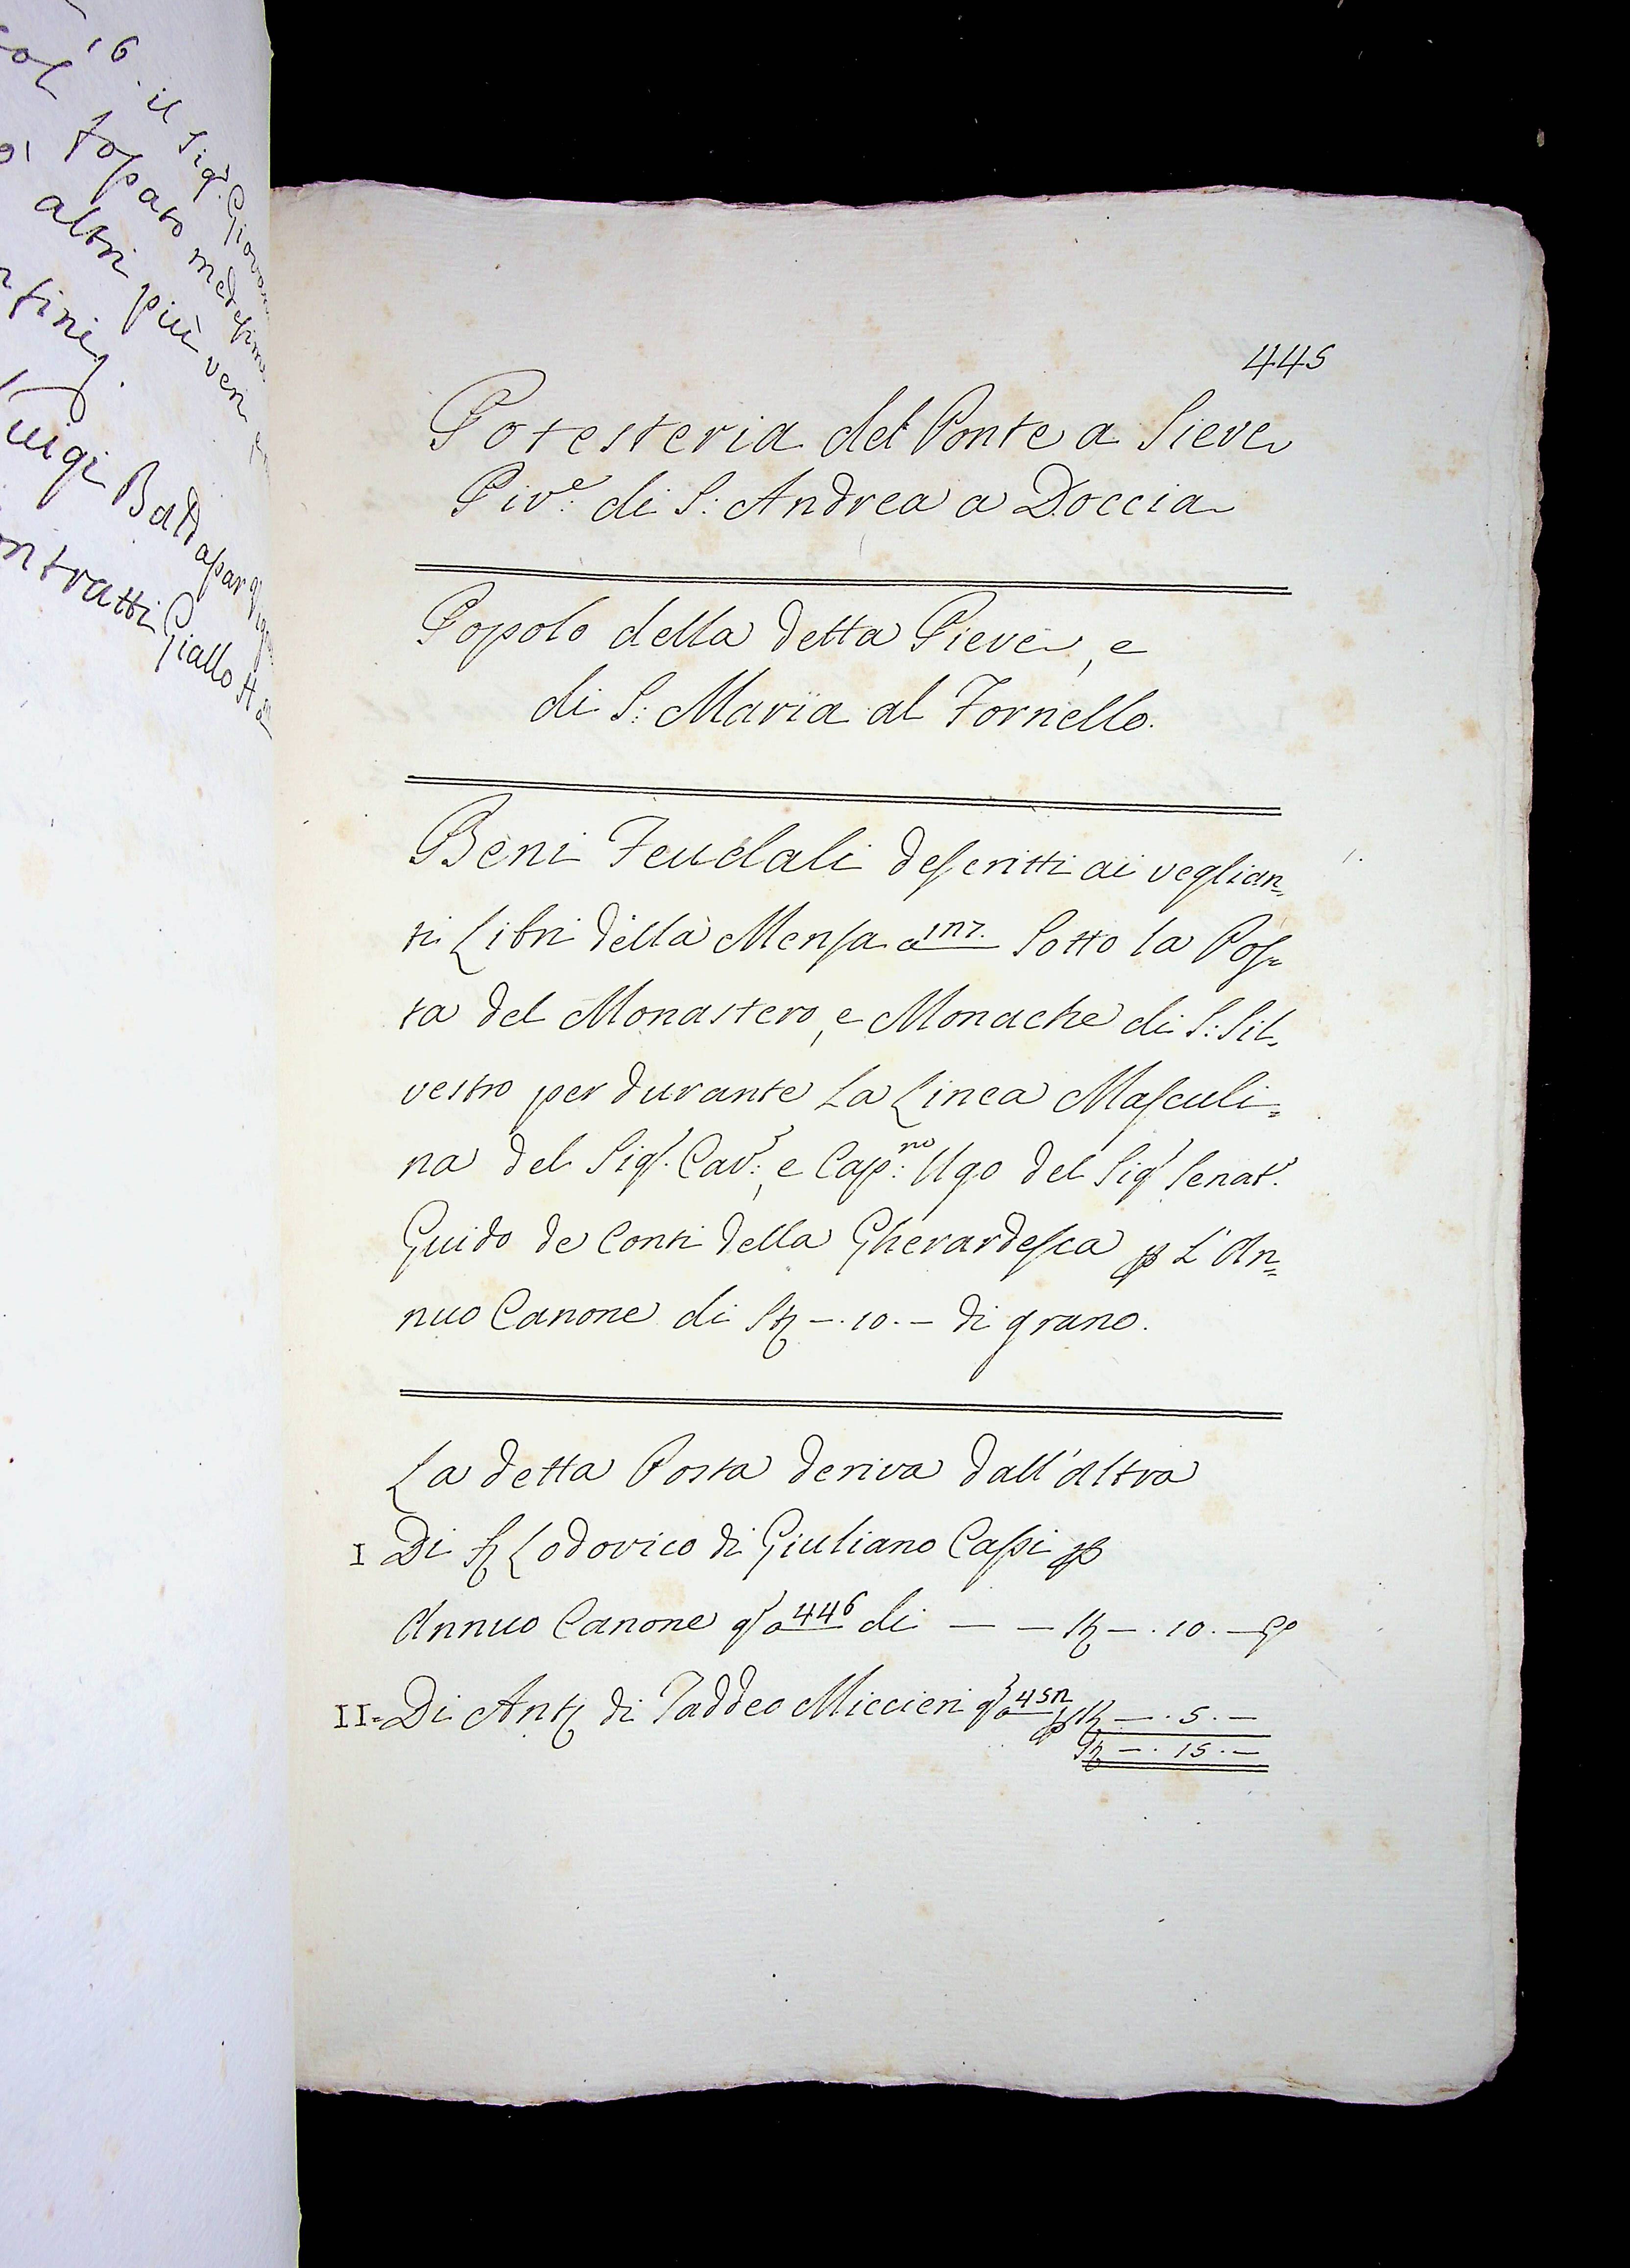 16. il Sig.r Giovan
sopato medesimo
altri più veri
fini
Luigi Baldasar
Contratti Giallo
445
Potesteria del Ponte a Sieve
Piv.e di S: Andrea a Doccia
Popolo della detta Pieve, e
di S: Maria al Fornello.
Beni Feudali descritti ai veglian=
ti Libri della Mensa a 177. Sotto la Pos=
ta del Monastero, e Monache di S: Sil=
vestro per durante La Linea Masculi=
na del Sig.r Cav.r, e Cap.no Ugo del Sig.r Senat.r
Guido de Conti della Gherardesca p L'An=
nuo Canone di St -. 10. - di grano.
La detta Posta deriva dall'Altra
I Di S Lodovico di Giuliano Cassi p
Annuo Canone q.r a 446 di - - St -. 10. - G.o
II= Di Ant di Taddeo Miccieri q.r a 457 p St -. 5. -
St -. 15. -